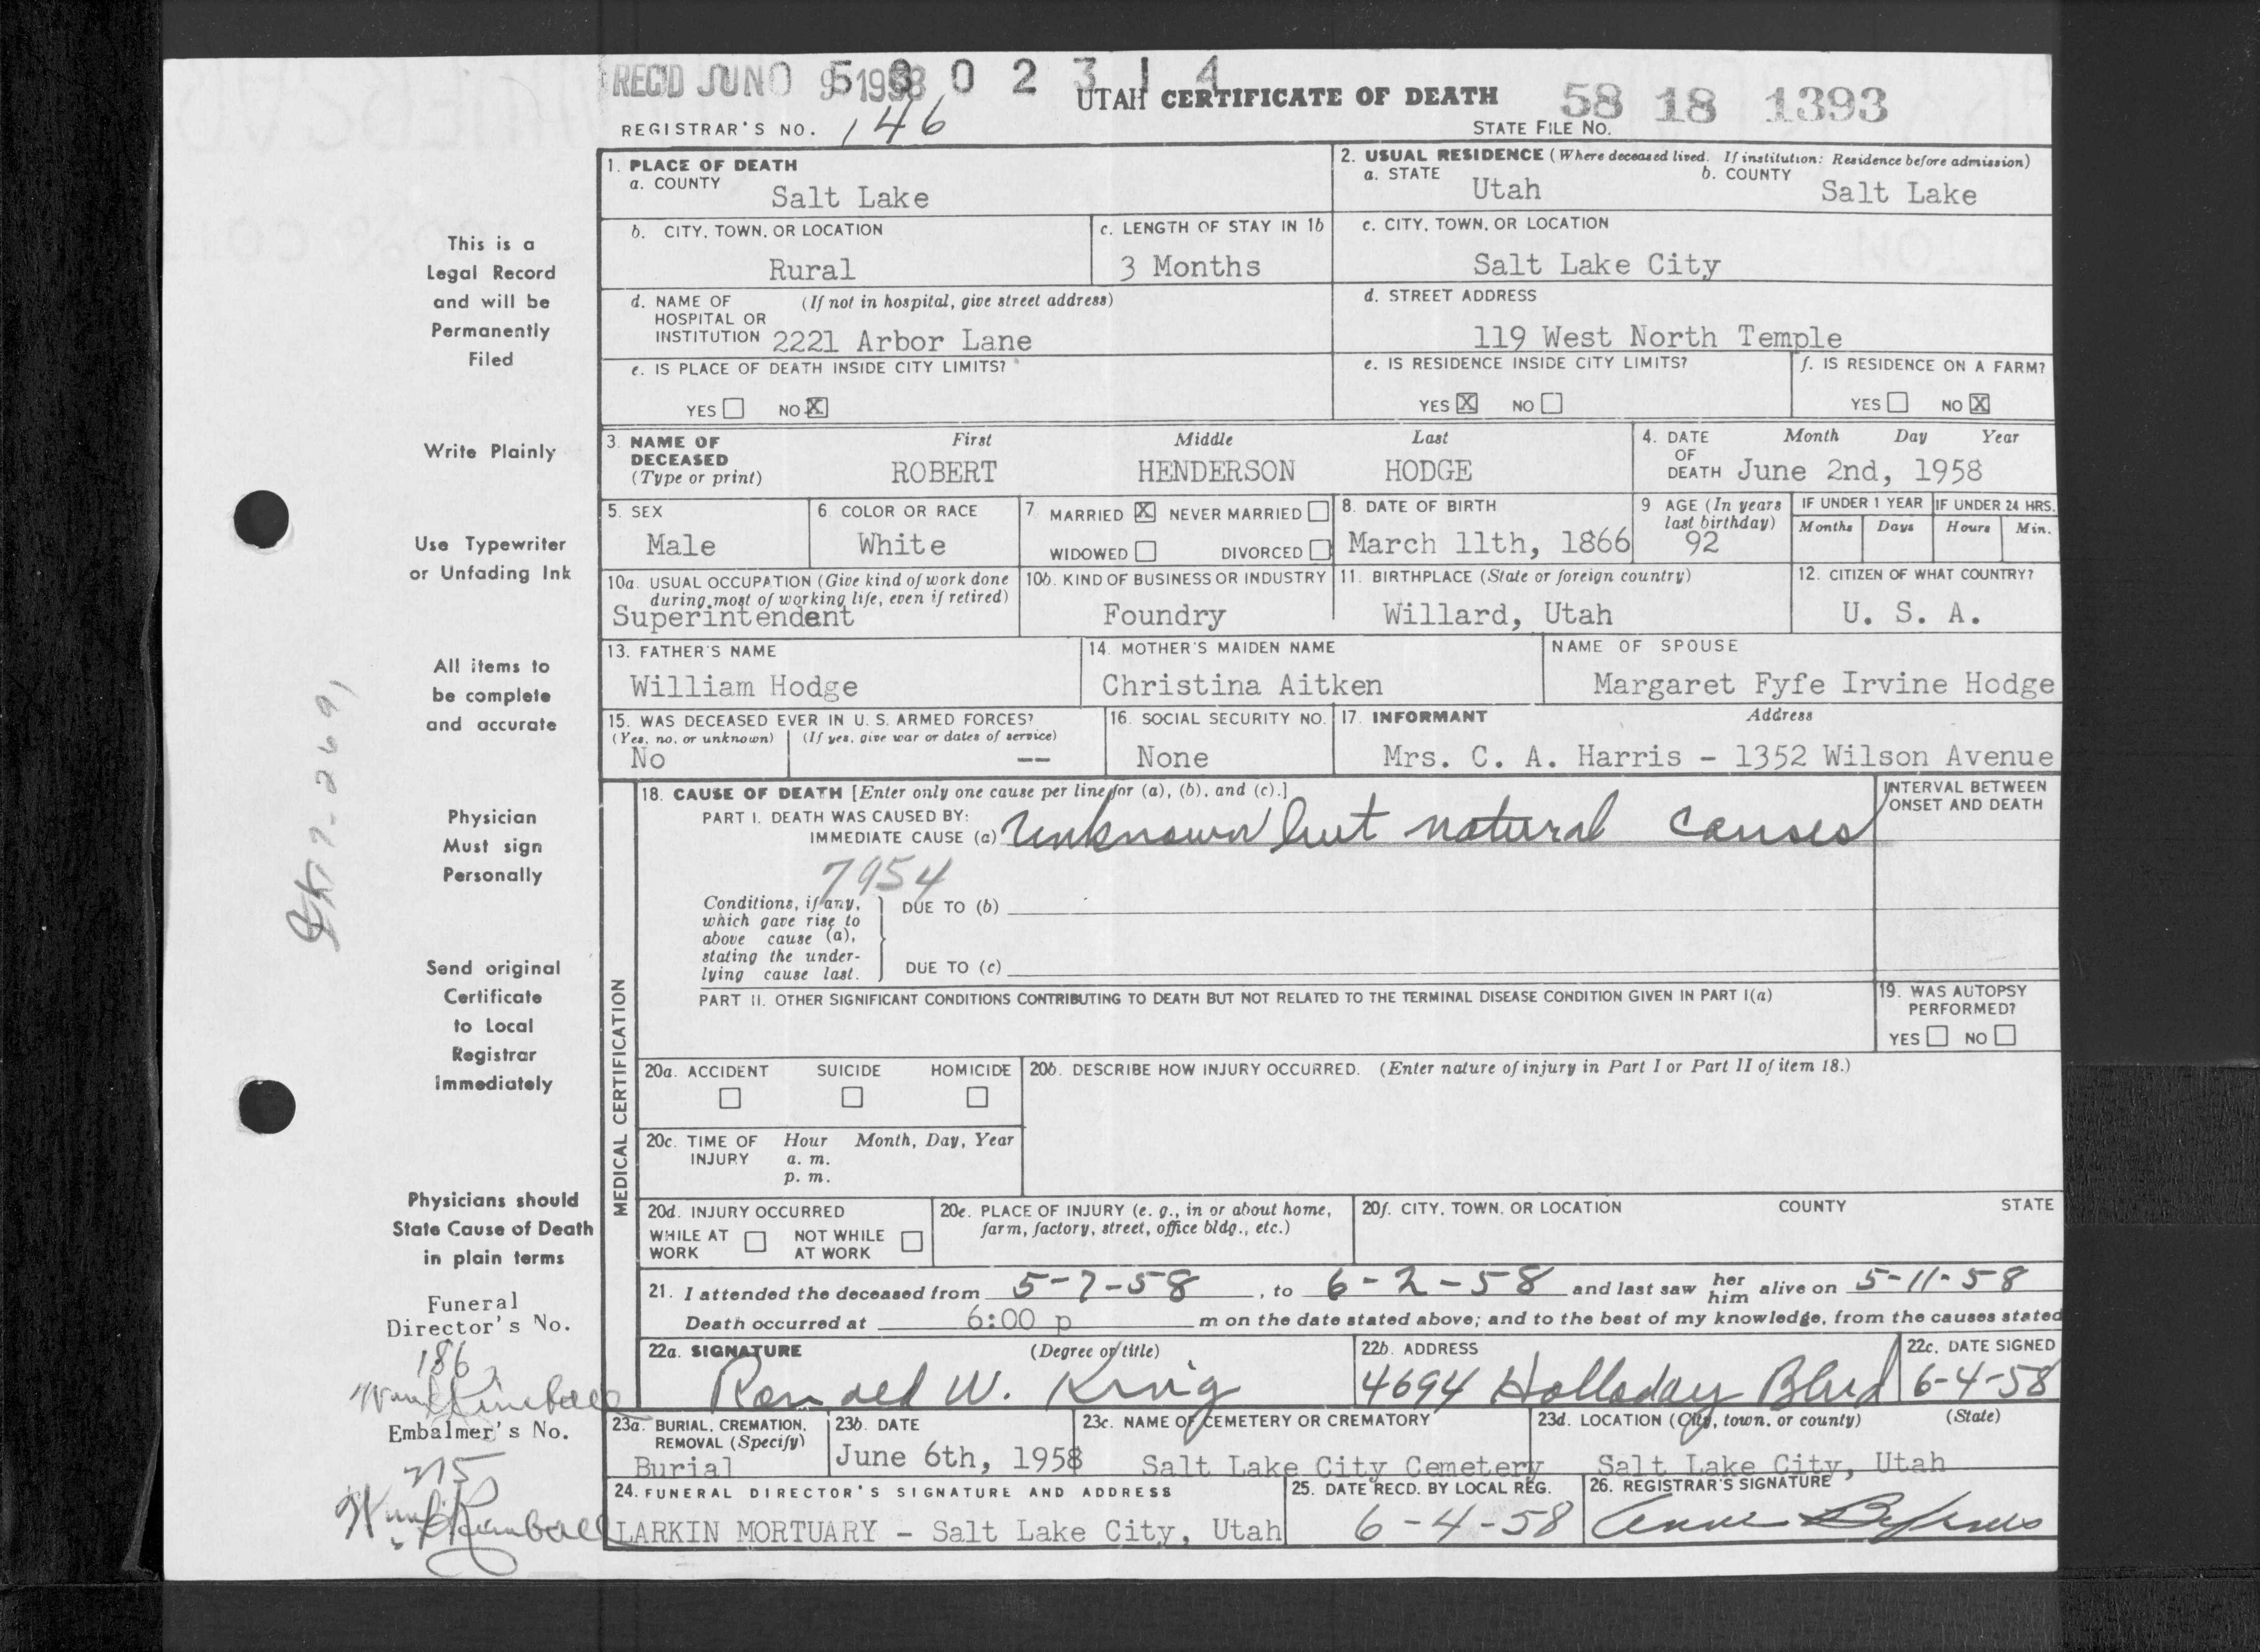 REC'D JUN 9 1958
0 5 8 0 2 3 1 4
UTAH CERTIFICATE OF DEATH
58 18 1393
REGISTRAR'S NO. 146
STATE FILE NO.
1. PLACE OF DEATH
a. COUNTY
Salt Lake
2. USUAL RESIDENCE (Where deceased lived. If institution: Residence before admission)
a. STATE Utah b. COUNTY Salt Lake
b. CITY, TOWN, OR LOCATION
Rural
c. LENGTH OF STAY IN 1b
3 Months
c. CITY, TOWN, OR LOCATION
Salt Lake City
d. NAME OF (If not in hospital, give street address)
HOSPITAL OR
INSTITUTION 2221 Arbor Lane
d. STREET ADDRESS
119 West North Temple
e. IS PLACE OF DEATH INSIDE CITY LIMITS?
YES NO X
e. IS RESIDENCE INSIDE CITY LIMITS?
YES X NO
f. IS RESIDENCE ON A FARM?
YES NO X
3. NAME OF
DECEASED
(Type or print)
First Middle Last
ROBERT HENDERSON HODGE
4. DATE Month Day Year
OF
DEATH June 2nd, 1958
5. SEX
Male
6. COLOR OR RACE
White
7. MARRIED X NEVER MARRIED
WIDOWED DIVORCED
8. DATE OF BIRTH
March 11th, 1866
9 AGE (In years
last birthday)
92
IF UNDER 1 YEAR
Months Days
IF UNDER 24 HRS.
Hours Min.
10a. USUAL OCCUPATION (Give kind of work done
during most of working life, even if retired)
Superintendent
10b. KIND OF BUSINESS OR INDUSTRY
Foundry
11. BIRTHPLACE (State or foreign country)
Willard, Utah
12. CITIZEN OF WHAT COUNTRY?
U. S. A.
13. FATHER'S NAME
William Hodge
14. MOTHER'S MAIDEN NAME
Christina Aitken
NAME OF SPOUSE
Margaret Fyfe Irvine Hodge
15. WAS DECEASED EVER IN U. S. ARMED FORCES?
(Yes, no, or unknown) (If yes, give war or dates of service)
No --
16. SOCIAL SECURITY NO.
None
17. INFORMANT Address
Mrs. C. A. Harris - 1352 Wilson Avenue
MEDICAL CERTIFICATION
18. CAUSE OF DEATH [Enter only one cause per line for (a), (b), and (c).]
PART I. DEATH WAS CAUSED BY:
IMMEDIATE CAUSE (a) Unknown but natural causes
INTERVAL BETWEEN
ONSET AND DEATH
7954
Conditions, if any,
which gave rise to
above cause (a),
stating the under-
lying cause last.
DUE TO (b)
DUE TO (c)
PART II. OTHER SIGNIFICANT CONDITIONS CONTRIBUTING TO DEATH BUT NOT RELATED TO THE TERMINAL DISEASE CONDITION GIVEN IN PART I(a)
19. WAS AUTOPSY
PERFORMED?
YES NO
20a. ACCIDENT SUICIDE HOMICIDE
20b. DESCRIBE HOW INJURY OCCURRED. (Enter nature of injury in Part I or Part II of item 18.)
20c. TIME OF Hour Month, Day, Year
INJURY a. m.
p. m.
20d. INJURY OCCURRED
WHILE AT NOT WHILE
WORK AT WORK
20e. PLACE OF INJURY (e. g., in or about home,
farm, factory, street, office bldg., etc.)
20f. CITY, TOWN, OR LOCATION COUNTY STATE
21. I attended the deceased from 5-7-58, to 6-2-58 and last saw her him alive on 5-11-58
Death occurred at 6:00 p m on the date stated above; and to the best of my knowledge, from the causes stated
22a. SIGNATURE (Degree or title)
Ronald W. King
22b. ADDRESS
4694 Holladay Blvd
22c. DATE SIGNED
6-4-58
23a. BURIAL, CREMATION,
REMOVAL (Specify)
Burial
23b. DATE
June 6th, 1958
23c. NAME OF CEMETERY OR CREMATORY
Salt Lake City Cemetery
23d. LOCATION (City, town, or county) (State)
Salt Lake City, Utah
24. FUNERAL DIRECTOR'S SIGNATURE AND ADDRESS
LARKIN MORTUARY - Salt Lake City, Utah
25. DATE RECD. BY LOCAL REG.
6-4-58
26. REGISTRAR'S SIGNATURE
This is a
Legal Record
and will be
Permanently
Filed
Write Plainly
Use Typewriter
or Unfading Ink
All items to
be complete
and accurate
Physician
Must sign
Personally
Send original
Certificate
to Local
Registrar
Immediately
Physicians should
State Cause of Death
in plain terms
Funeral
Director's No.
186
Embalmer's No.
215